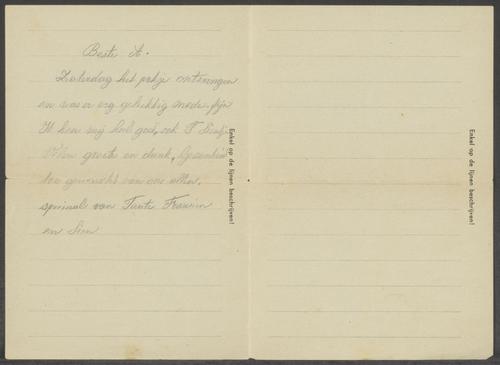 Beste A.
Zaterdag het pakje ontvangen
en was er erg gelukkig mede. fijn
Ik ben nog heel goed, ook T.
groeten en dank,
toe gewenscht van ons allen,
speciaal van Tante
en Sien
Enkel op de lijnen beschrijven!
Enkel op de lijnen beschrijven!